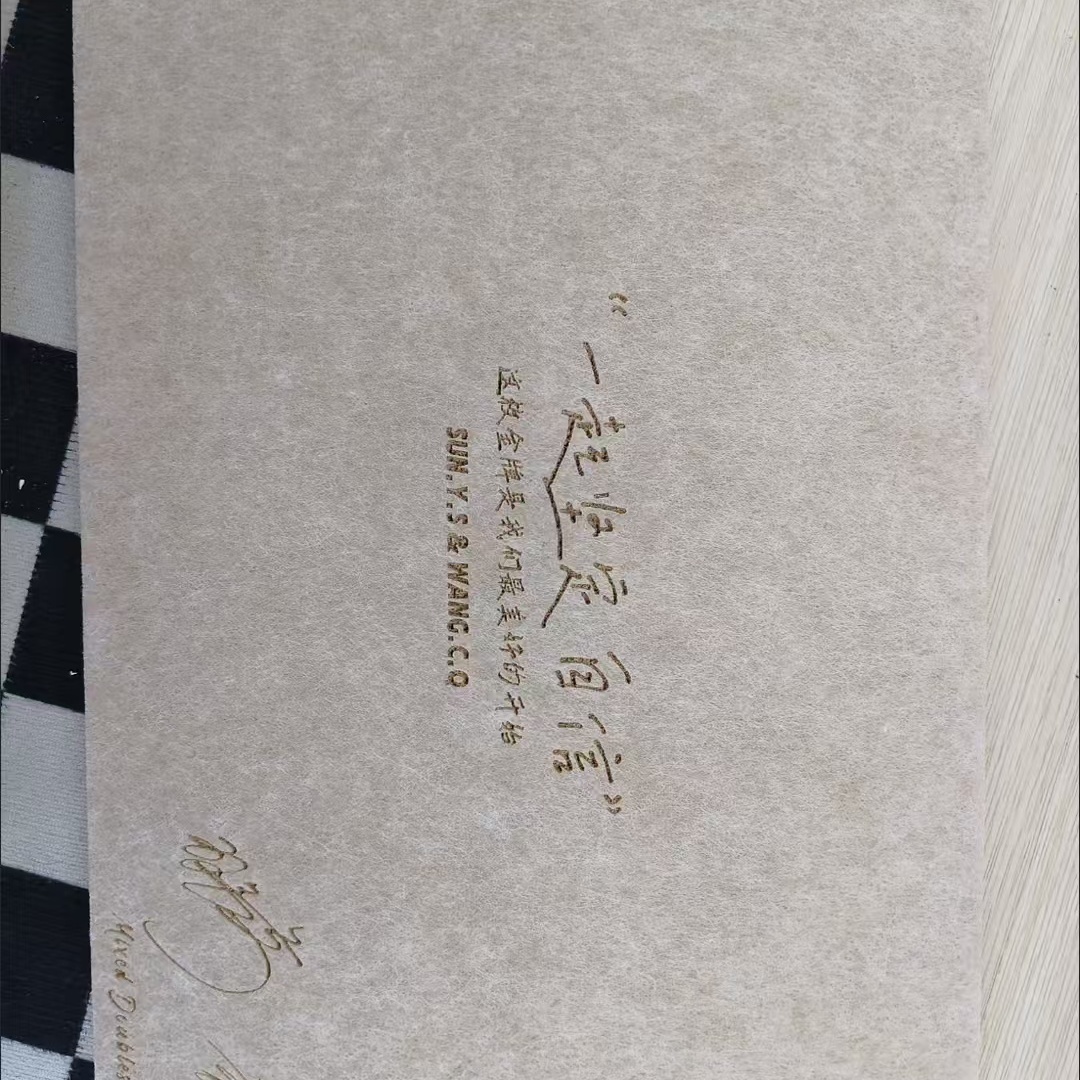 “一起坚定自信”
这枚金牌是我们最美好的开始
SUN.Y.S & WANG.C.Q
Mixed Doubles